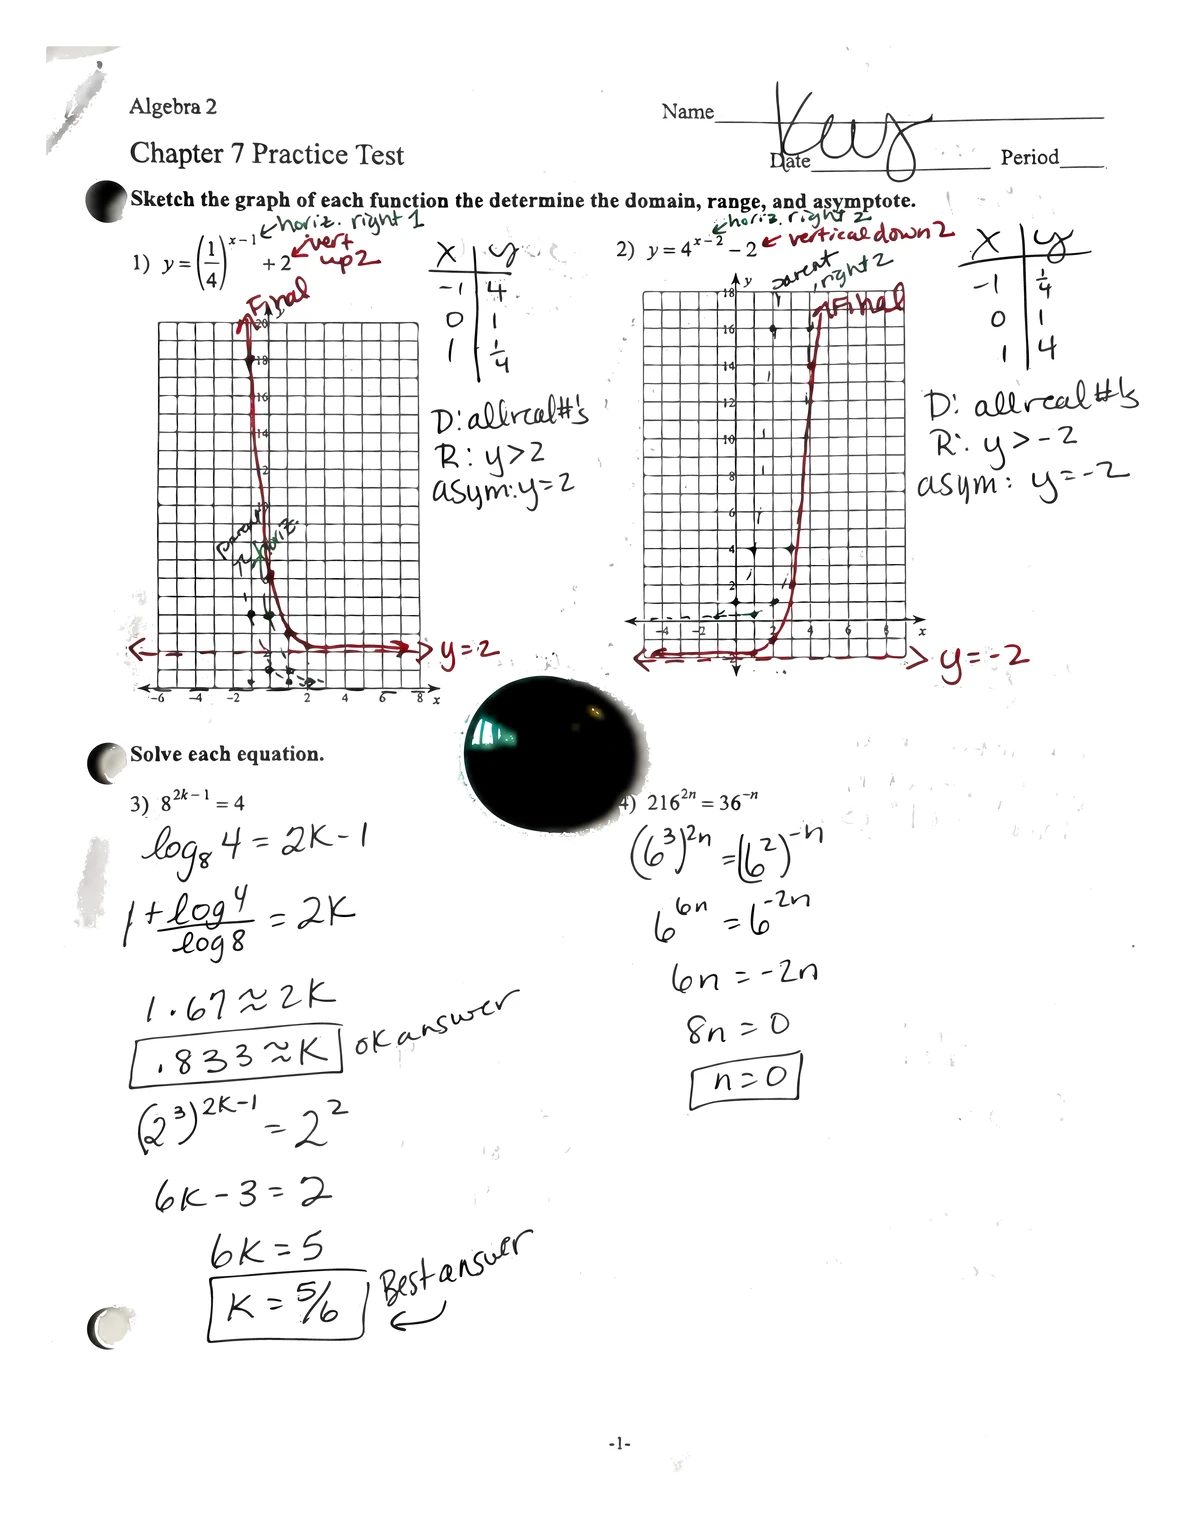 Algebra 2
Name
Key
Chapter 7 Practice Test
Date
Period
Sketch the graph of each function the determine the domain, range, and asymptote.
horiz. right 1
1) y = (1/4)^(x – 1) + 2
vert
up 2
x | y
-1 | 4
0 | 1
1 | 1/4
Final
20
18
16
14
parent
horiz.
-6 -4 -2 2 4 6 8 x
y=2
D: all real #'s
R: y>2
asym: y=2
horiz. right 2
2) y = 4^(x – 2) – 2
vertical down 2
parent
right 2
Final
y
18
16
14
12
10
8
6
4
2
-4 -2 2 4 6 8 x
y=-2
x | y
-1 | 1/4
0 | 1
1 | 4
D: all real #'s
R: y>-2
asym: y=-2
Solve each equation.
3) 8^(2k – 1) = 4
log₈ 4 = 2k-1
1 + log 4 / log 8 = 2k
1.67 ≈ 2k
.833 ≈ k
ok answer
(2³)^(2k-1) = 2²
6k - 3 = 2
6k = 5
k = 5/6
Best answer
4) 216^(2n) = 36^(–n)
(6³)^(2n) = (6²)^(-n)
6^(6n) = 6^(-2n)
6n = -2n
8n = 0
n = 0
-1-